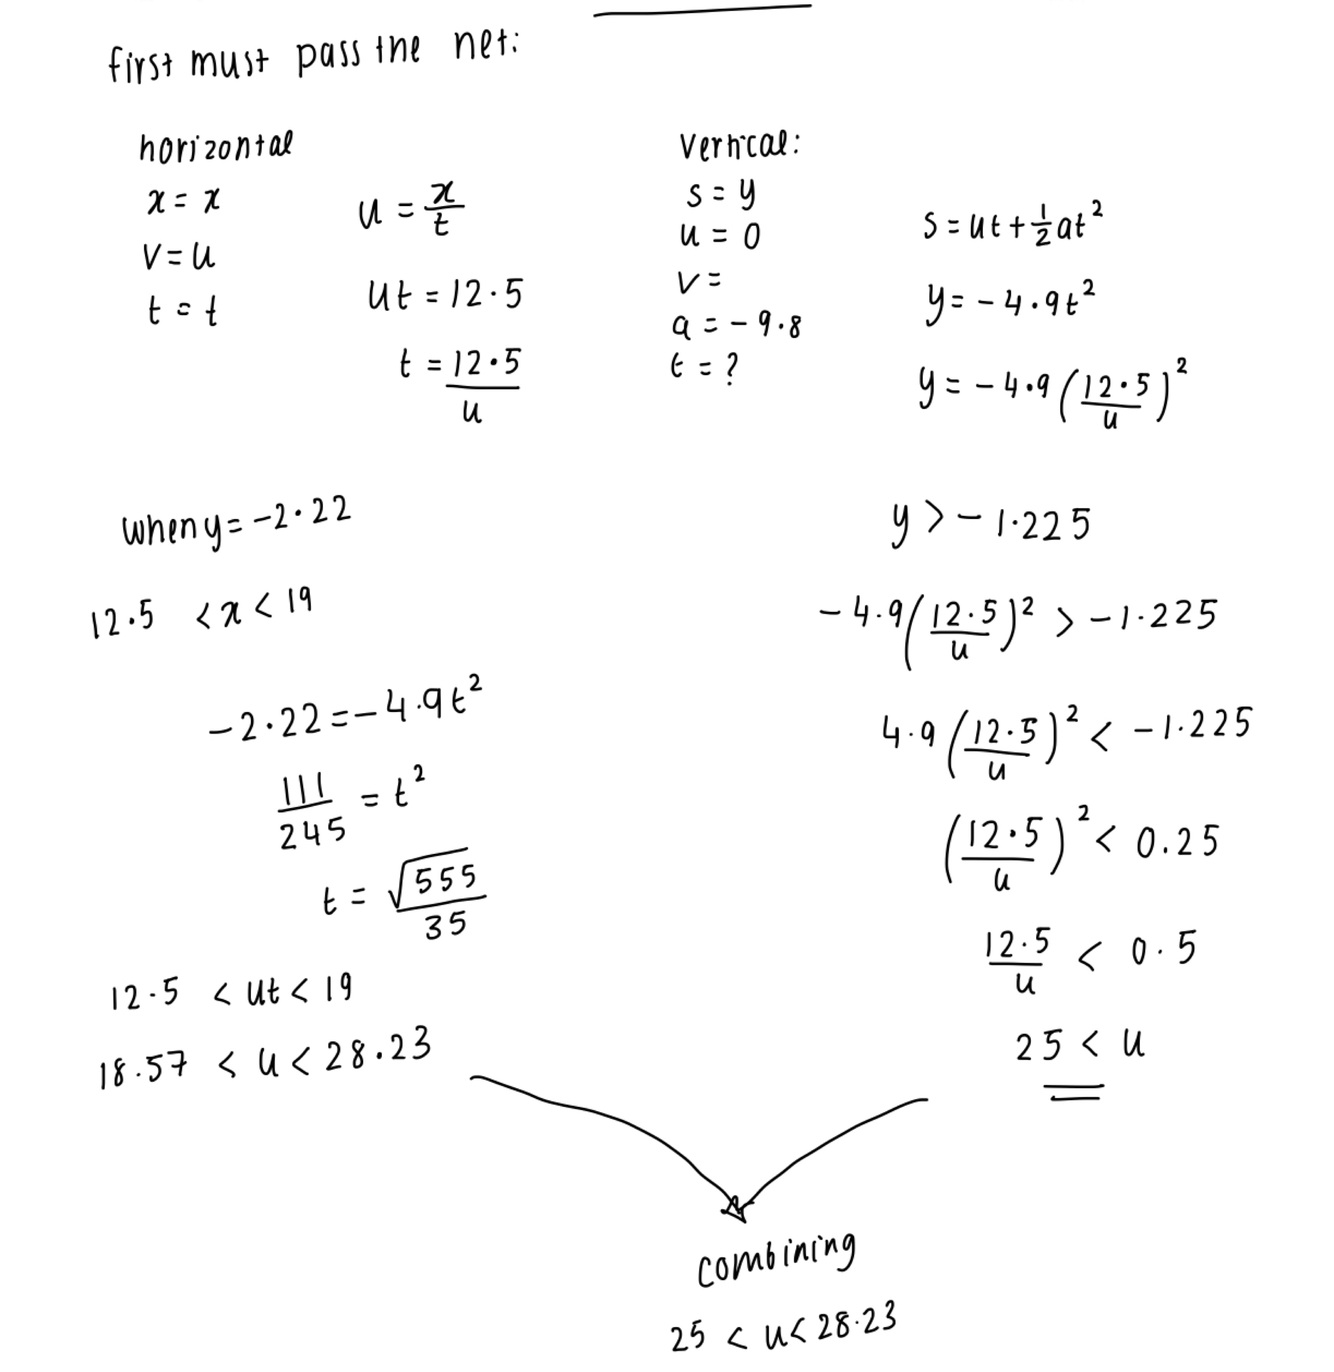 first must pass the net:
horizontal
x = x
v = u
t = t
u = x/t
ut = 12.5
t = 12.5/u
vertical:
s = y
u = 0
v =
a = -9.8
t = ?
s = ut + 1/2 at²
y = -4.9t²
y = -4.9(12.5/u)²
when y = -2.22
12.5 < x < 19
-2.22 = -4.9t²
111/245 = t²
t = √555/35
12.5 < ut < 19
18.57 < u < 28.23
y > -1.225
-4.9(12.5/u)² > -1.225
4.9(12.5/u)² < -1.225
(12.5/u)² < 0.25
12.5/u < 0.5
25 < u
combining
25 < u < 28.23